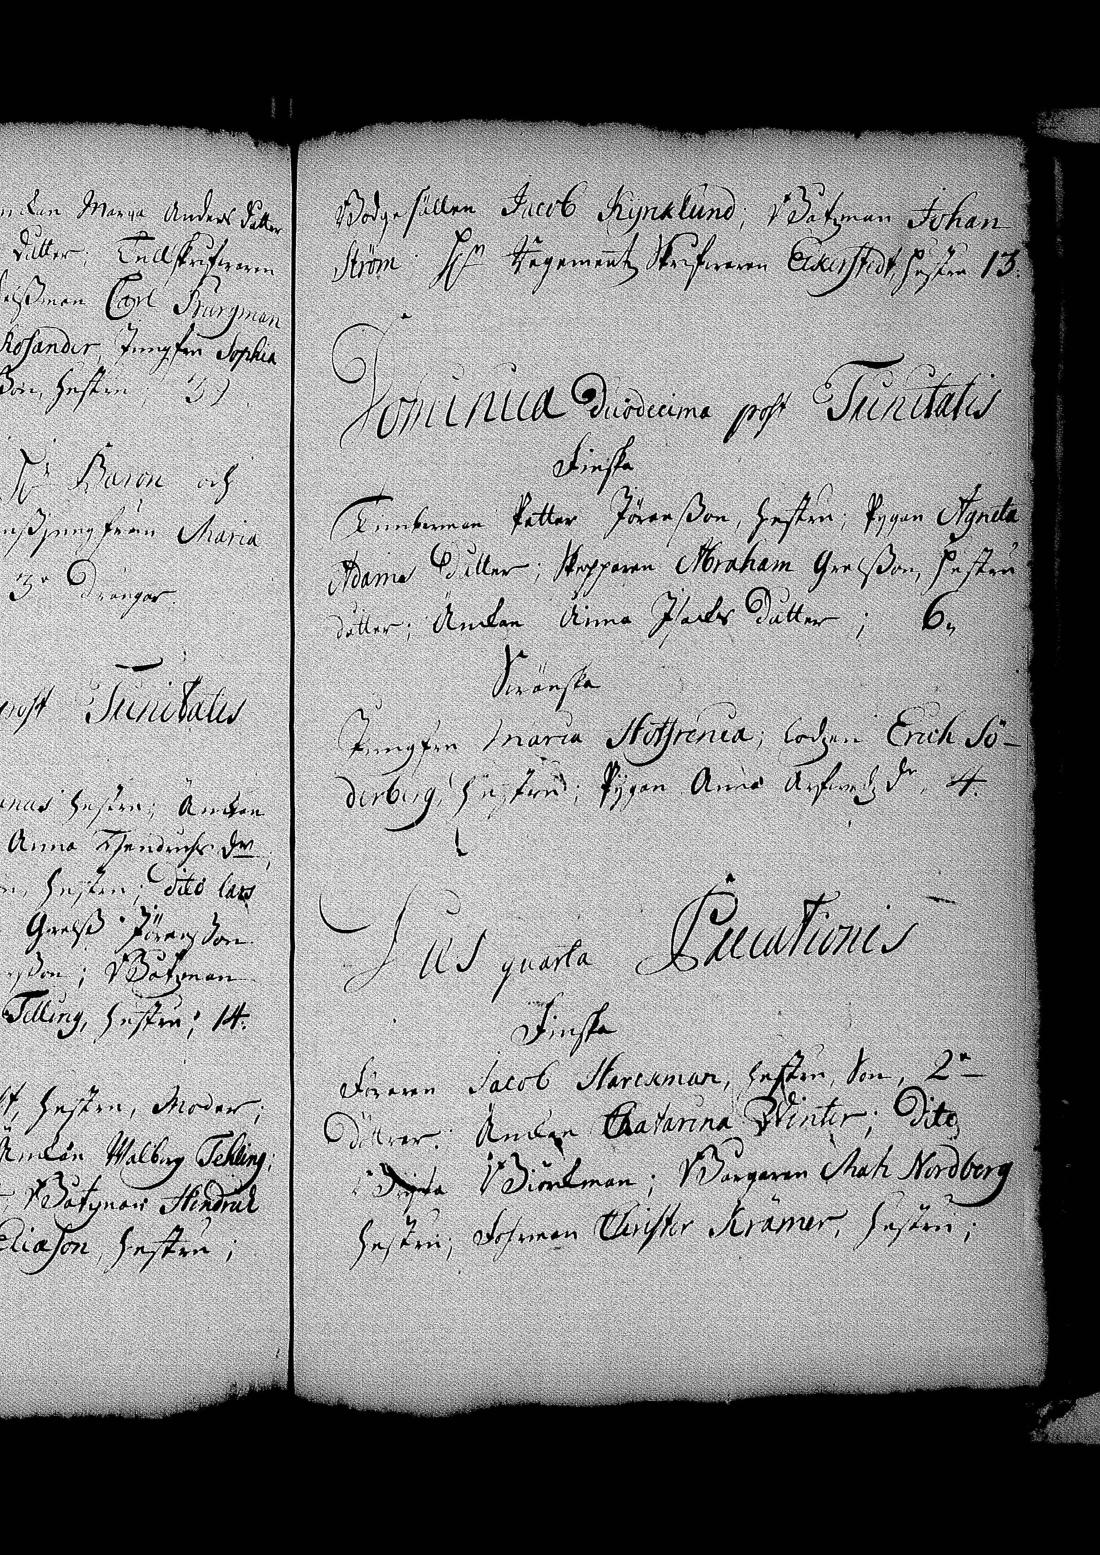 Marga Anders dåtter
dåtter; Tullskrifwaren
Carl Burgman
Rosander, Jungfru Sophia
son, hustru; 3
Hr Baron och
jungfrun Maria
3e Drängar.
post Trinitatis
hustru; Änkan
Anna Hendrichs dr;
hustru; dito Lars
Grels Jöransson
son; Båtzman
Telling, hustru; 14.
hustru, Moder;
Änkan Walborg Tehling;
Båtzman Hindrick
Eliason, hustru;
Bodgesällen Jacob Kyrklund; Båtzman Johan
Ström Hr Regements Skrifwaren Eckerstedt, hustru 13.
Dominica duodecima post Trinitatis
Finska
Timberman Petter Jöransson, hustru; Pygan Agneta
Adams dåtter; Skepparen Abraham Grelsson, hustru
dåtter; Änkan Anna Isacks dåtter; 6,,
Swänska
Jungfru Maria Hothrenia; Lodzen Erich Sö-
derberg, hustru; Pygan Anna Arfwedz dr, 4.
Dies quarta Precationis
Finska
Föraren Jacob Starckman, hustru, Son, 2ne
Dåttrar. Änkan Catarina Winter; Dito
Brita Biörkman; Borgaren Math Nordberg
hustru; Forman Christer Krämer, hustru;